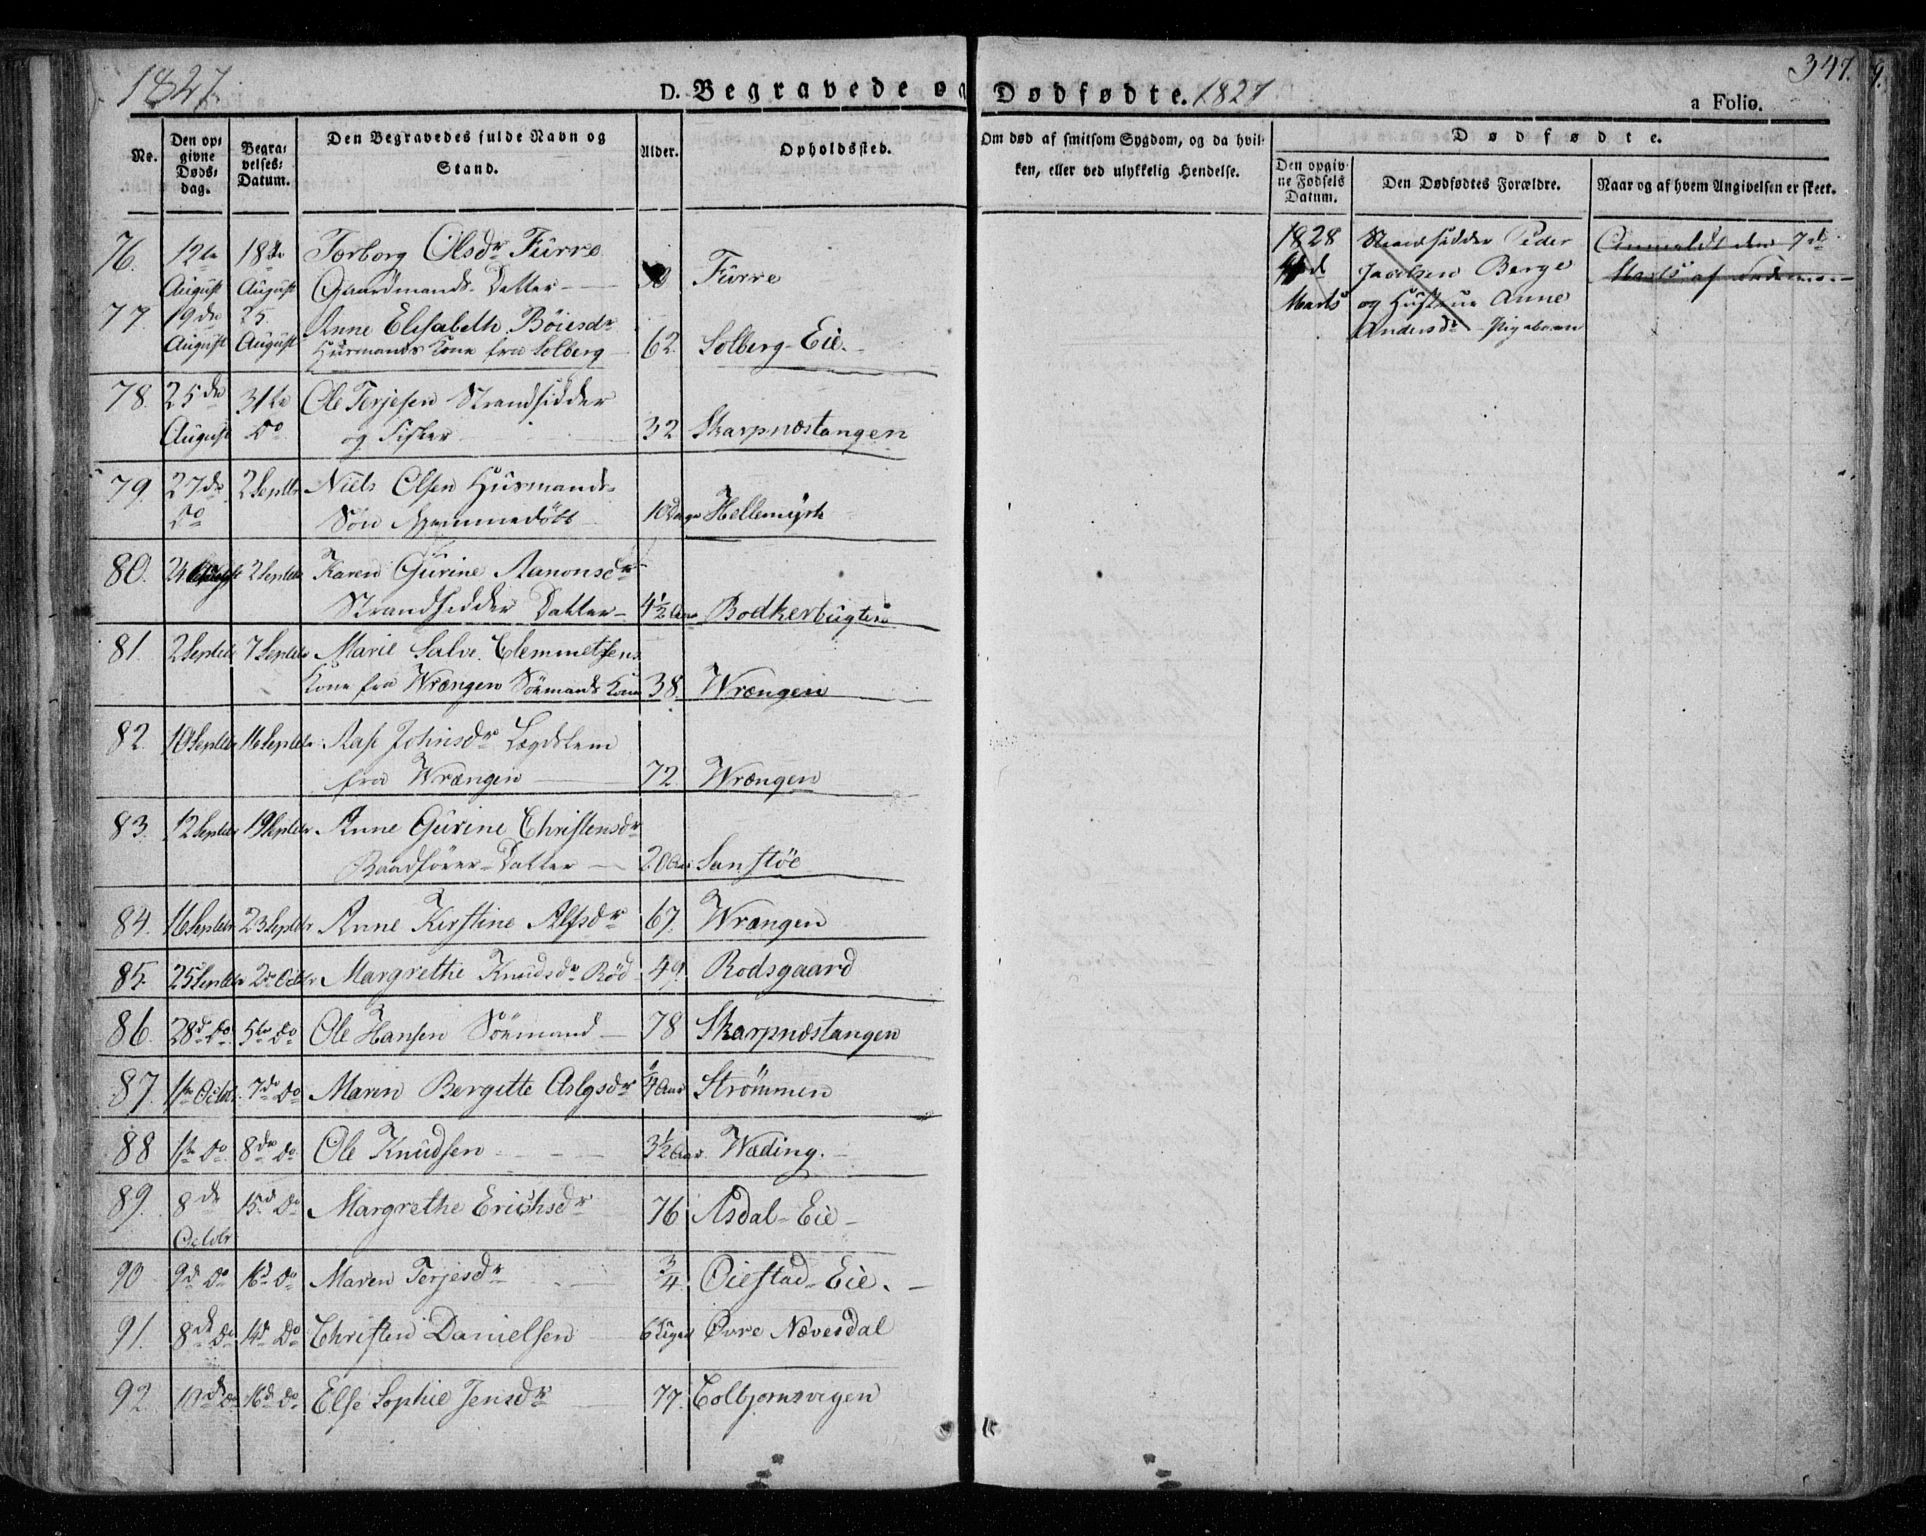 1827.
D. Begravede og Dødfødte. 1827
347.
a Folio.
No.
Den op-
givne
Døds-
dag.
Begra-
velses-
Datum.
Den Begravedes fulde Navn og
Stand.
Alder.
Opholdssted.
Om død af smitsom Sygdom, og da hvil-
ken, eller ved ulykkelig Hendelse.
Dødfødte.
Den opgiv-
ne Fødsels
Datum.
Den Dødfødtes Forældre.
Naar og af hvem Angivelsen er skeet.
76. 12te 18de Torborg Olsdr Furre
August August Gaardmands Datter Furre
77. 19de 25 Anne Elisabeth Böiesdr
August August Husmands Kone fra Solberg 62. Solberg-Eie.
78. 25de 31te Ole Terjesen Strandsidder
August Do og Fisker 32 Skarpnæstangen
79. 27de 2 Septbr Niels Olsen Husmands
Do Søn hjemmedøbt 10 Dage Hellemyrh
80. 24 August 2 Septbr Karen Gurine Aanonsdr
Strandsidder Datter 4 1/2 Aar Bodkerbugten
81. 2 Septbr 7 Septbr Marie Salve Clemmetsens
Kone fra Wrængen Sømands Kone 38. Wrængen
82. 10 Septbr 16 Septbr Aase Johnsdr Lægdslem
fra Wrængen 72 Wrængen
83. 12 Septbr 19 Septbr Anne Gurine Christensdr
Baadfører-Datter 20 Aar Sanstöe
84. 16 Septbr 23 Septbr Anne Kirstine Alfsdr 67. Wrængen
85. 25 Septbr 2de Octbr Margrethe Knudsdr Röd 49. Rodsgaard
86. 28de Do 5te Do Ole Hansen Sömand 78 Skarpnæstangen
87. 1ste Octbr. 7de Do Maren Bergitte Aslgsdr Aar Strömmen
88 1ste Do 8de Do Ole Knudsen 3 1/2 Aar. Wading.
89. 8de 15de Do Margrethe Erichsdr 76 Asdal-Eie
Octbr
90 9d Do 16d Do Maren Terjesdr 3/4 Oiestad-Eie.
91. 8de Do 14de Do Christen Danielsen 6 Uger Øvre Nævesdal
92. 10de Do 16de Do Else Sophie Jensdr 77. Colbjornsvigen
1828 Strandsidder Peder Anmeldt den 7de
4de Jacobsen Berge Marts af Faderen
Marts og Hustrue Anne
Andersdr Pigebarn